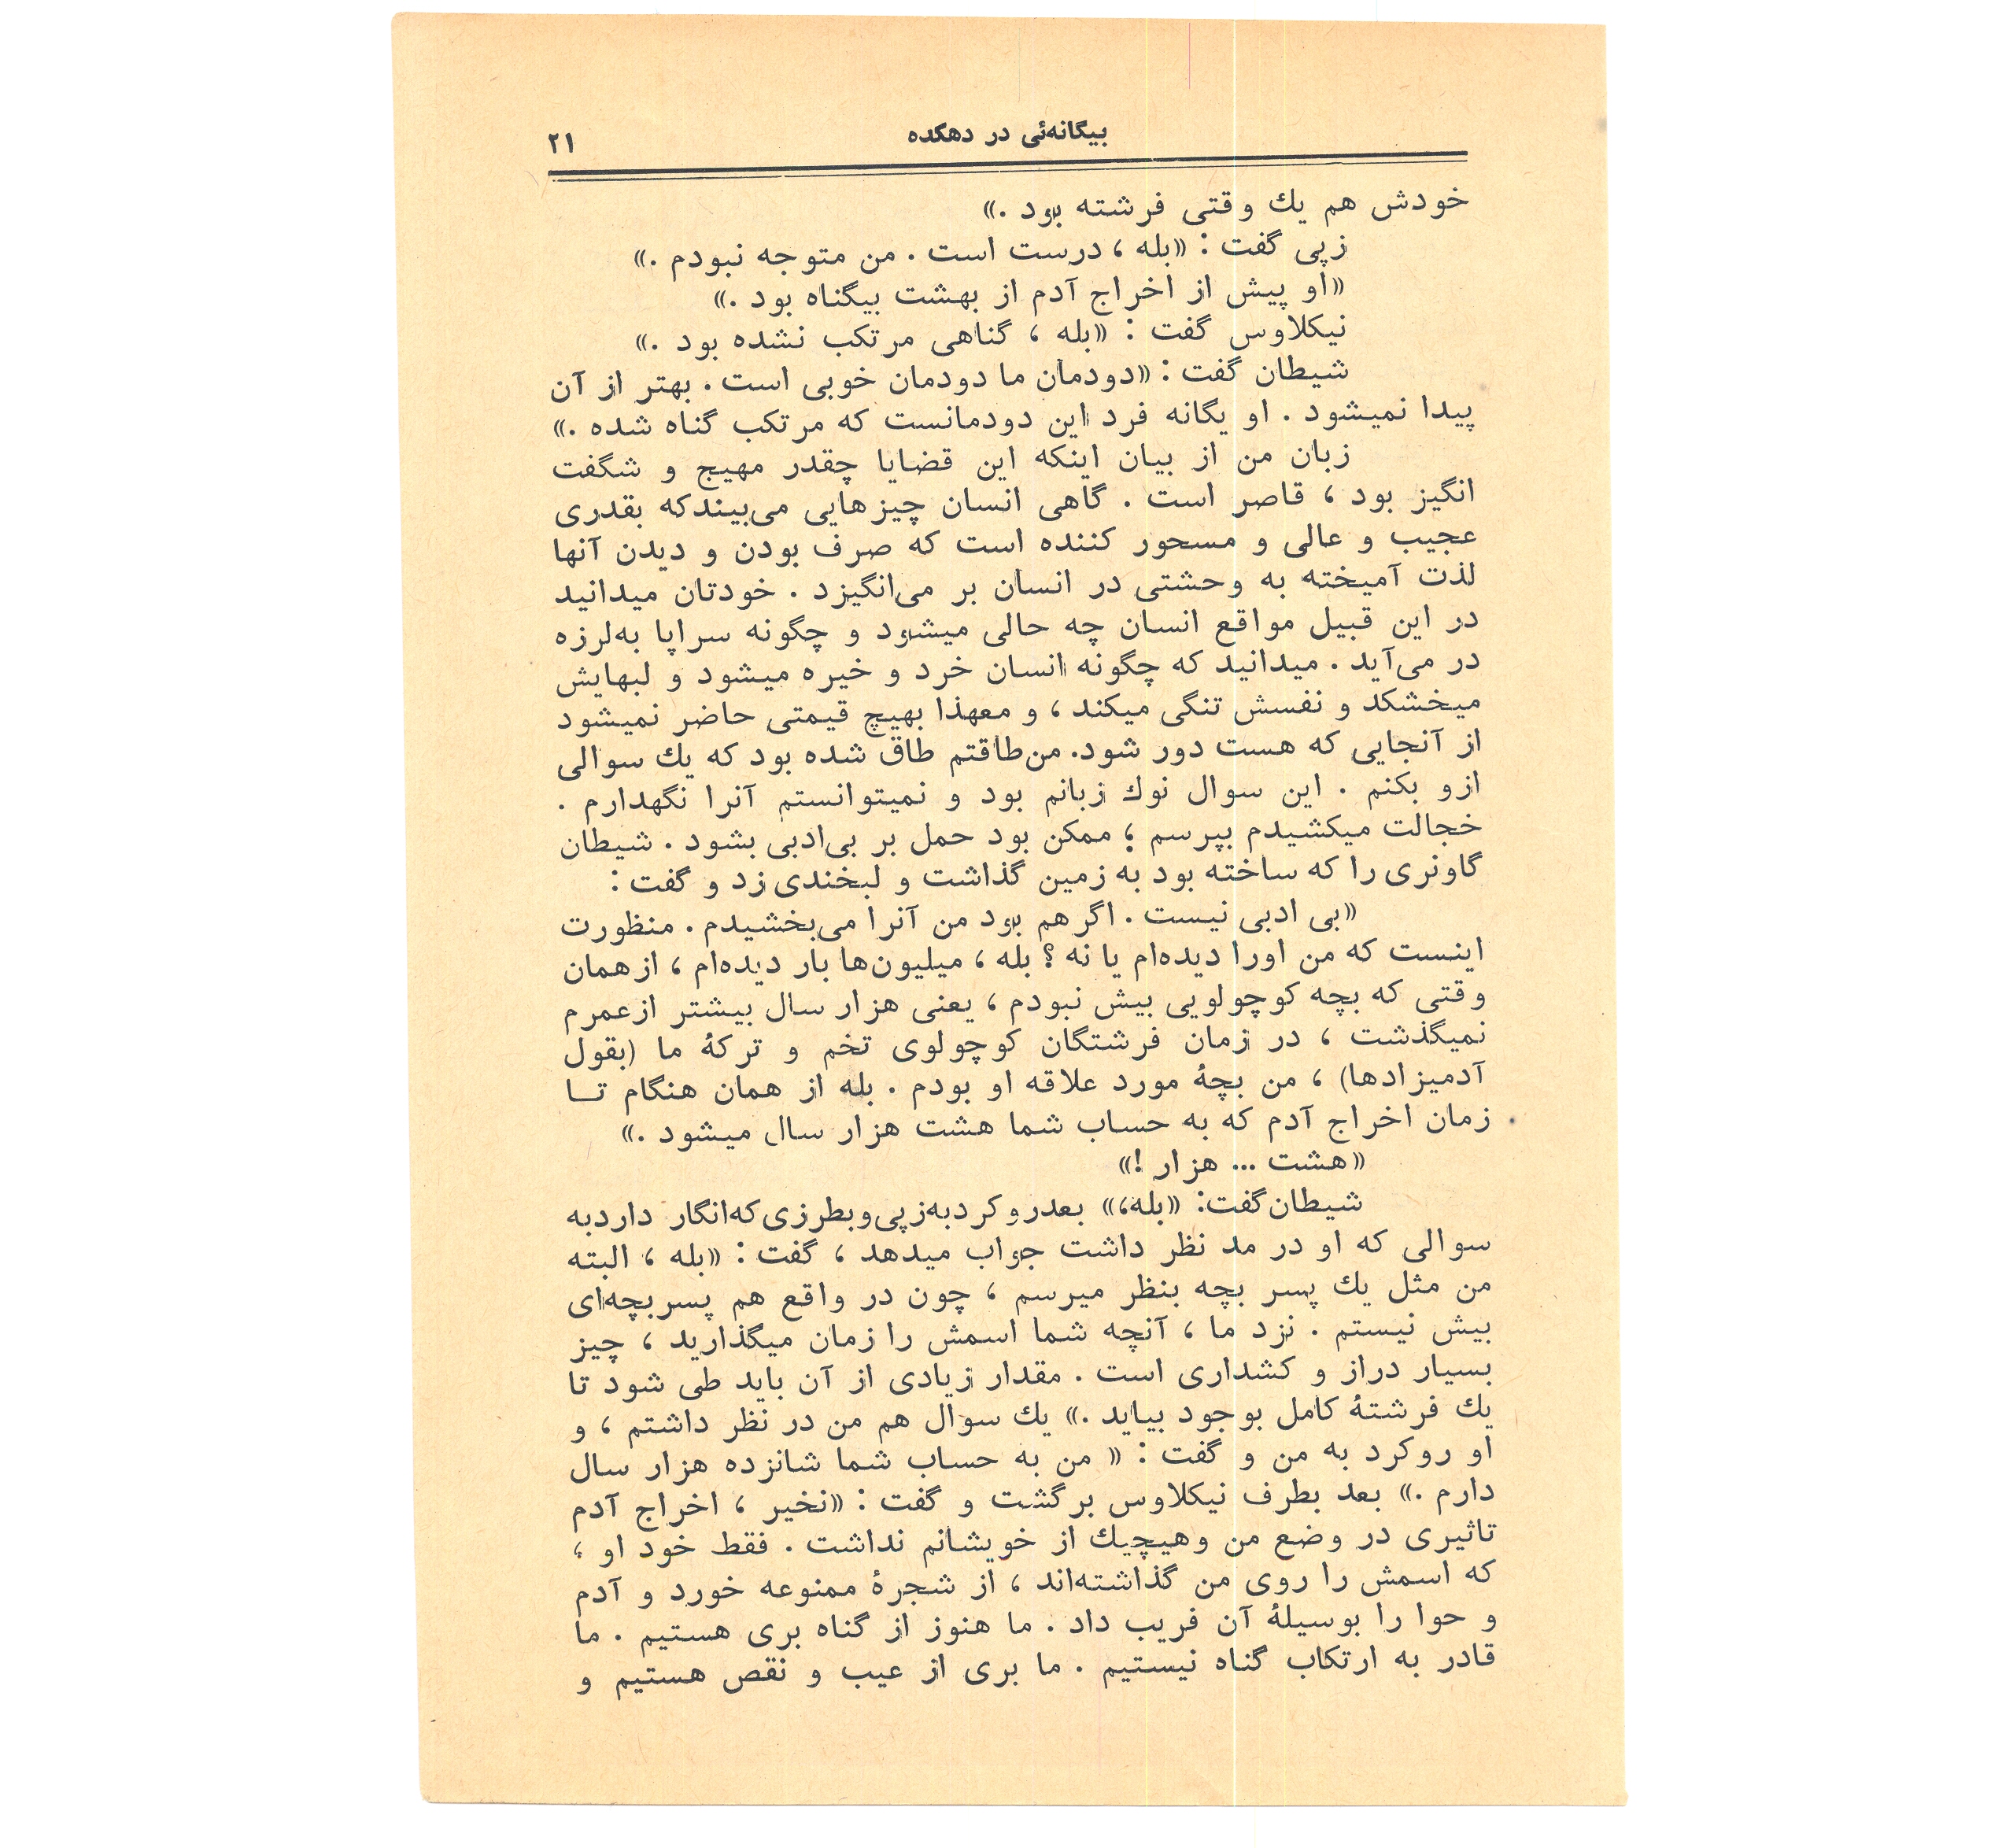 بیگانه‌ئی در دهکده
۲۱
خودش هم یك وقتی فرشته بود .»
زپی گفت : «بله ، درست است . من متوجه نبودم .»
«او پیش از اخراج آدم از بهشت بیگناه بود .»
نیکلاوس گفت : «بله ، گناهی مرتکب نشده بود .»
شیطان گفت : «دودمان ما دودمان خوبی است . بهتر از آن
پیدا نمیشود . او یگانه فرد این دودمانست که مرتکب گناه شده .»
زبان من از بیان اینکه این قضایا چقدر مهیج و شگفت
انگیز بود ، قاصر است . گاهی انسان چیزهایی می‌بیندکه بقدری
عجیب و عالی و مسحور کننده است که صرف بودن و دیدن آنها
لذت آمیخته به وحشتی در انسان بر می‌انگیزد . خودتان میدانید
در این قبیل مواقع انسان چه حالی میشود و چگونه سراپا به‌لرزه
در می‌آید . میدانید که چگونه انسان خرد و خیره میشود و لبهایش
میخشکد و نفسش تنگی میکند ، و معهذا بهیچ قیمتی حاضر نمیشود
از آنجایی که هست دور شود. من‌طاقتم طاق شده بود که یك سوالی
ازو بکنم . این سوال نوك زبانم بود و نمیتوانستم آنرا نگهدارم .
خجالت میکشیدم بپرسم ؛ ممکن بود حمل بر بی‌ادبی بشود . شیطان
گاونری را که ساخته بود به زمین گذاشت و لبخندی زد و گفت :
«بی ادبی نیست . اگر هم بود من آنرا می‌بخشیدم . منظورت
اینست که من اورا دیده‌ام یا نه ؟ بله ، میلیون‌ها بار دیده‌ام ، از همان
وقتی که بچه کوچولویی بیش نبودم ، یعنی هزار سال بیشتر ازعمرم
نمیگذشت ، در زمان فرشتگان کوچولوی تخم و ترکهٔ ما (بقول
آدمیزادها) ، من بچهٔ مورد علاقه او بودم . بله از همان هنگام تـا
زمان اخراج آدم که به حساب شما هشت هزار سال میشود .»
«هشت ... هزار !»
شیطان‌گفت: «بله،» بعدروکردبه‌زپی‌وبطرزی‌که‌انگار داردبه
سوالی که او در مد نظر داشت جواب میدهد ، گفت : «بله ، البته
من مثل یك پسر بچه بنظر میرسم ، چون در واقع هم پسربچه‌ای
بیش نیستم . نزد ما ، آنچه شما اسمش را زمان میگذارید ، چیز
بسیار دراز و کشداری است . مقدار زیادی از آن باید طی شود تا
یك فرشتهٔ کامل بوجود بیاید .» یك سوال هم من در نظر داشتم ، و
او روکرد به من و گفت : « من به حساب شما شانزده هزار سال
دارم .» بعد بطرف نیکلاوس برگشت و گفت : «نخیر ، اخراج آدم
تاثیری در وضع من وهیچیك از خویشانم نداشت . فقط خود او ،
که اسمش را روی من گذاشته‌اند ، از شجرهٔ ممنوعه خورد و آدم
و حوا را بوسیلهٔ آن فریب داد . ما هنوز از گناه بری هستیم . ما
قادر به ارتکاب گناه نیستیم . ما بری از عیب و نقص هستیم و